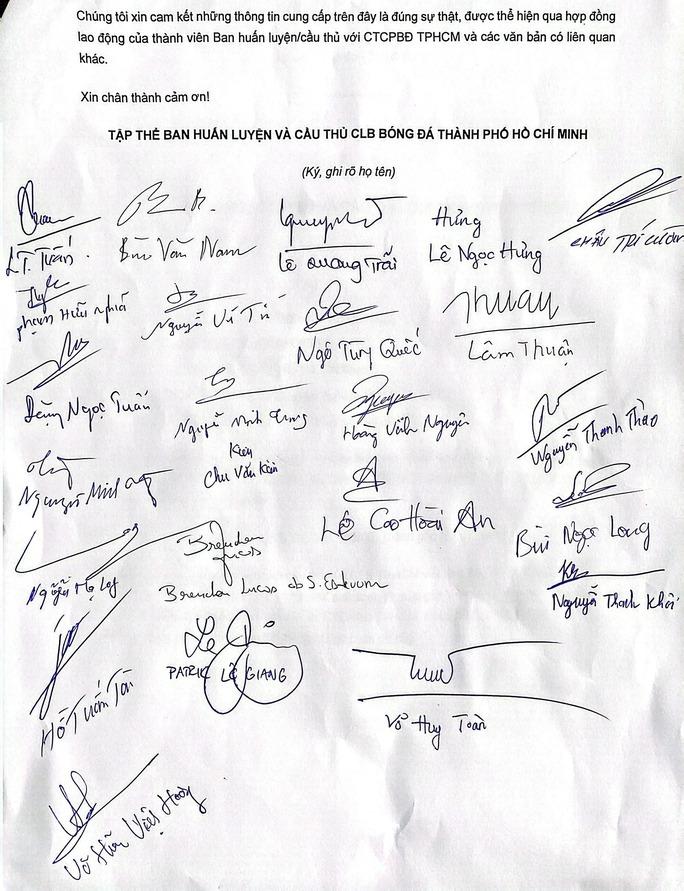 Chúng tôi xin cam kết những thông tin cung cấp trên đây là đúng sự thật, được thể hiện qua hợp đồng
lao động của thành viên Ban huấn luyện/cầu thủ với CTCPBĐ TPHCM và các văn bản có liên quan
khác.
Xin chân thành cảm ơn!
TẬP THỂ BAN HUẤN LUYỆN VÀ CẦU THỦ CLB BÓNG ĐÁ THÀNH PHỐ HỒ CHÍ MINH
(Ký, ghi rõ họ tên)
Hưng
L.T. Tuấn. Bùi Văn Nam Lê Quang Trãi Lê Ngọc Hưng CHÂU TRÍ CƯỜNG
Phạm Hữu Nghĩa Nguyễn Vĩ Tú
Thuan
Ngô Tùng Quốc Lâm Thuận
Đặng Ngọc Tuấn Nguyễn Minh Trung Hoàng Vĩnh Nguyên Nguyễn Thanh Thảo
Kiên
Chu Văn Kiên
Nguyễn Minh
Lê Cao Hoài An Bùi Ngọc Long
Brendan
Lucas
Nguyễn Hạ Long Brendon Lucas Nguyễn Thanh Khôi
PATRIK LÊ GIANG
Hồ Tuấn Tài
Võ Huy Toàn
Võ Hữu Việt Hoàng